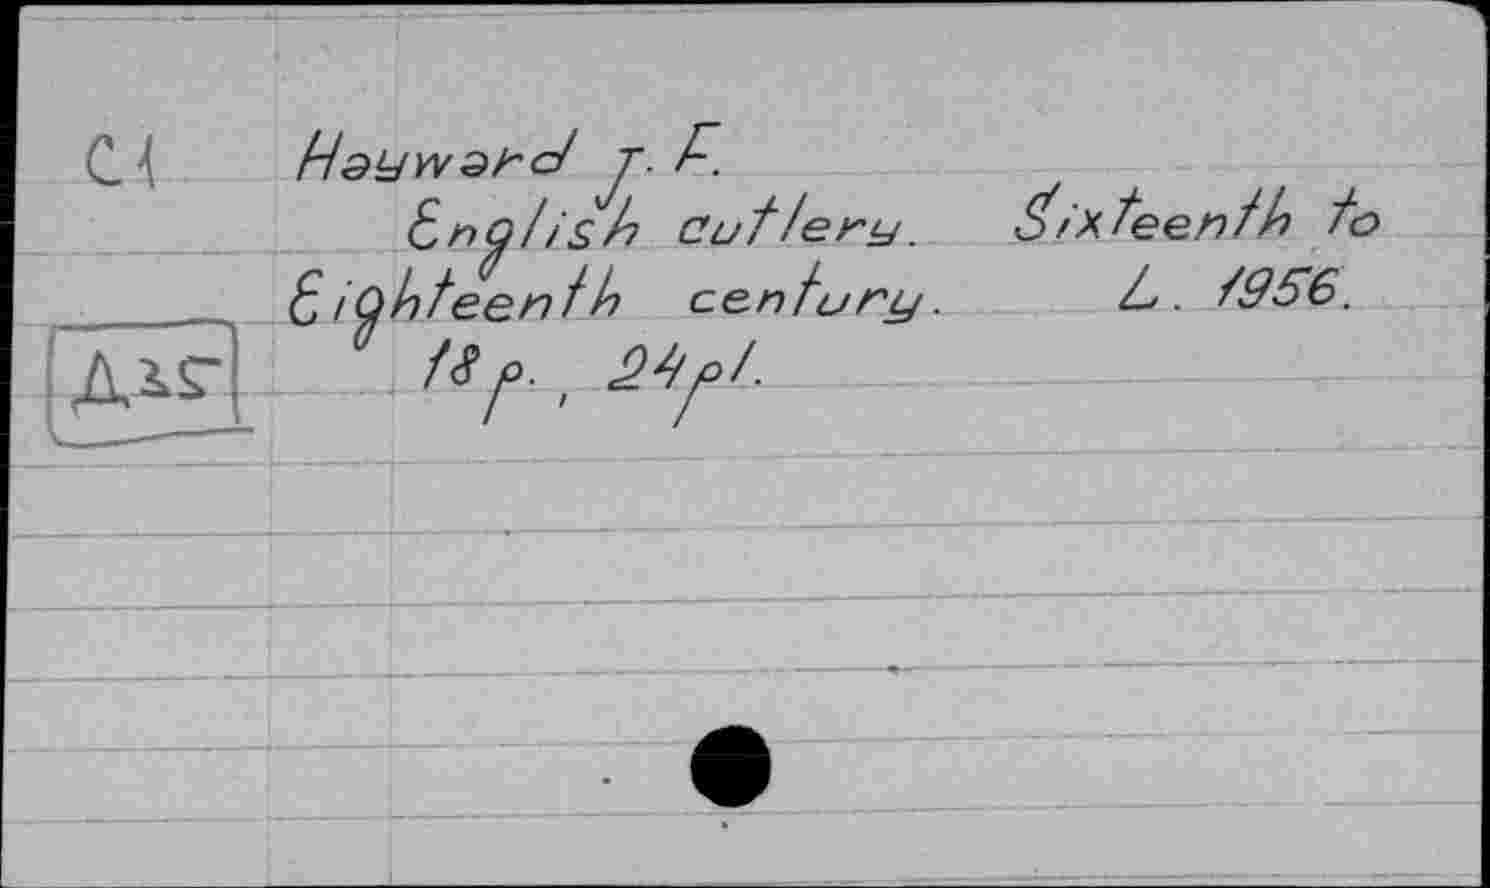 C1 Hayward J. F.
English cutlery. Sixteenth to
Eighteenth century. L. 1956.
18 p., 24 pl.